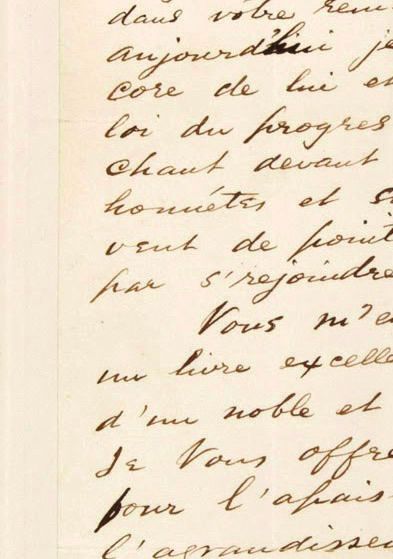 dans votre
aujourd'hui je
core de lui et
loi du progres
chant devant
honnêtes et
vent de point
par s'rejoindre
Vous m'e
un livre excelle
d'un noble et
Je Vous offre
pour l'apais-
l'agrandissem